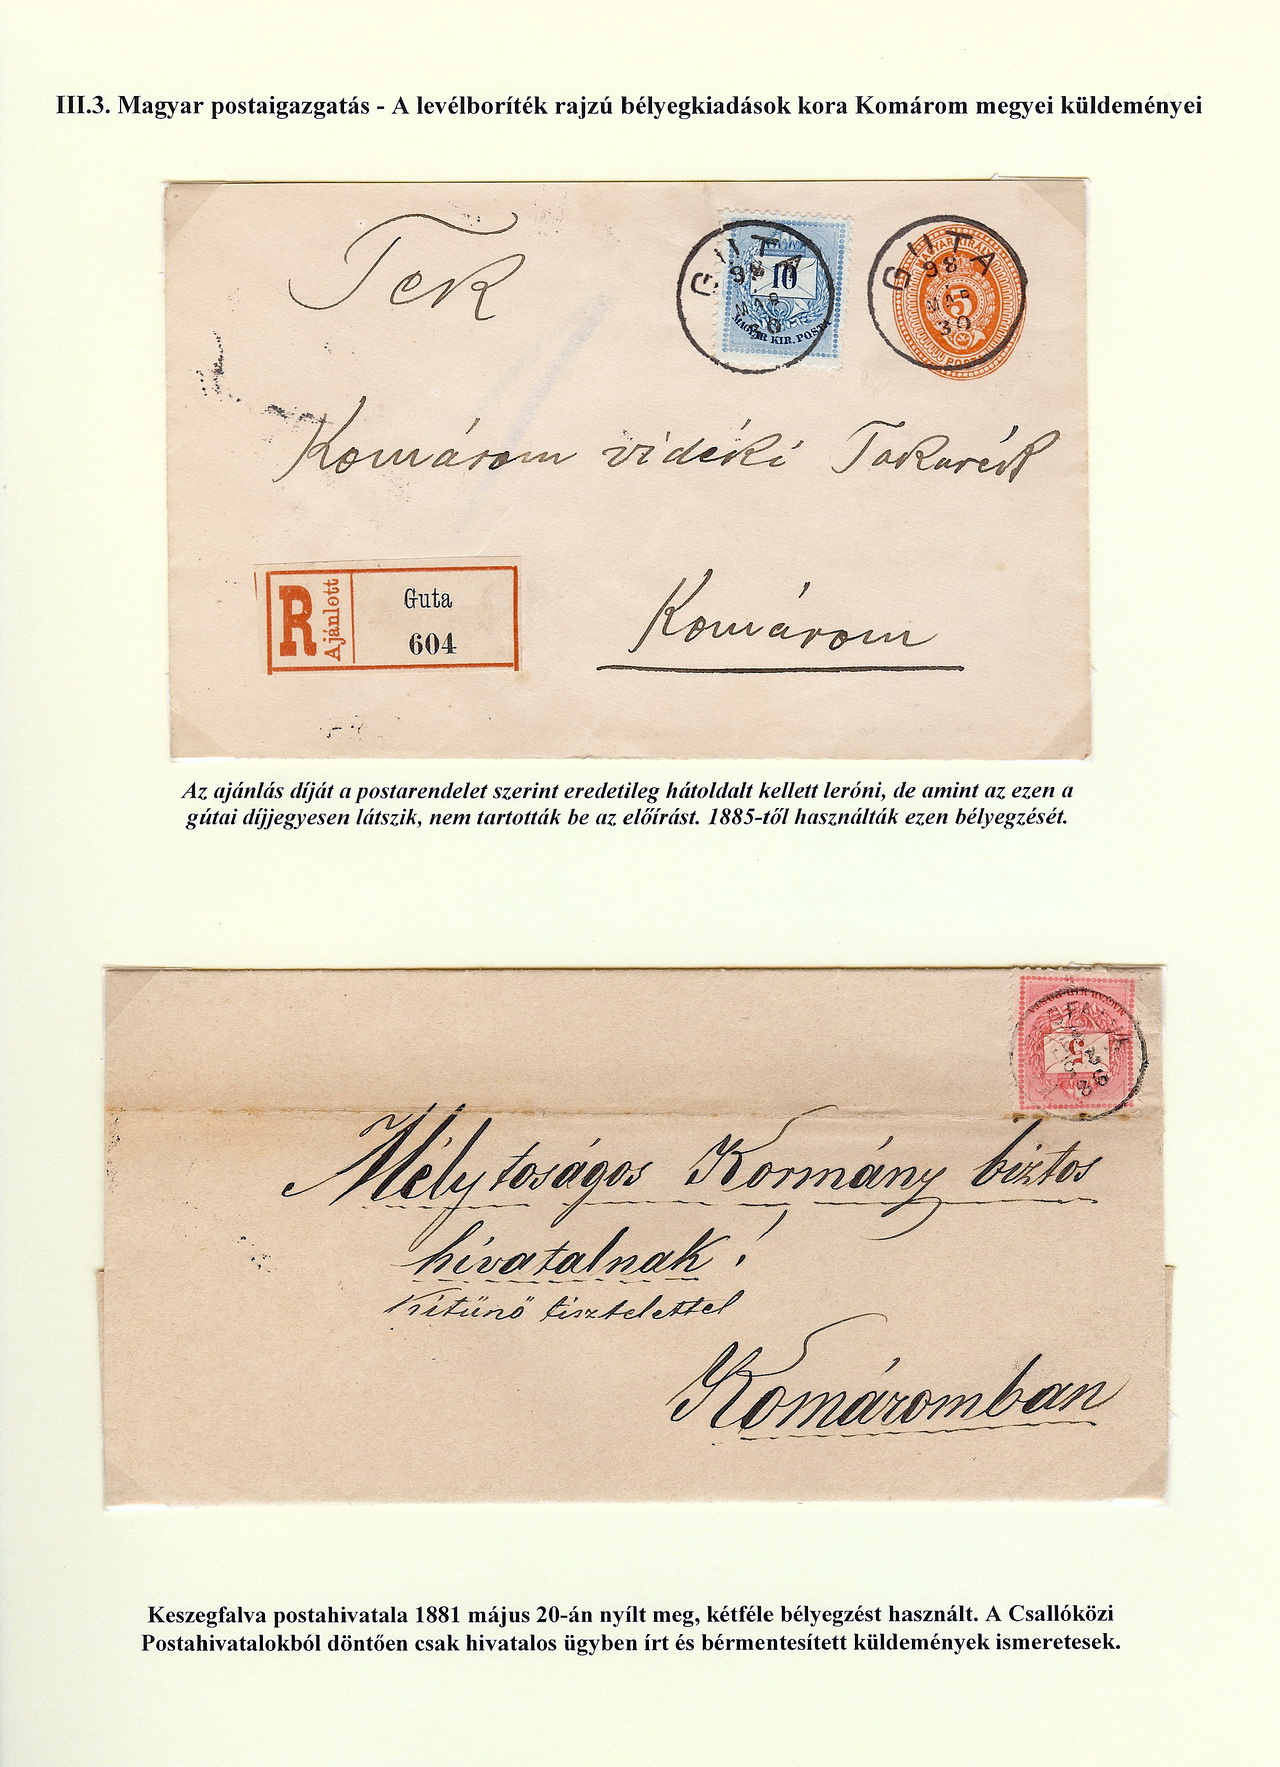 III.3. Magyar postaigazgatás - A levélboríték rajzú bélyegkiadások kora Komárom megyei küldeményei
GUTA
98
MAR
30
10
MAGYAR KIR. POSTA
GUTA
98
MAR
30
MAGYAR KIRÁLYI
5
POSTA
Tek
Komárom vidéki Takarék
R
Ajánlott
Guta
604
Komárom
Az ajánlás díját a postarendelet szerint eredetileg hátoldalt kellett leróni, de amint az ezen a
gútai díjjegyesen látszik, nem tartották be az előírást. 1885-től használták ezen bélyegzését.
MAGYAR KIR. POSTA
5
Mélytoságos Kormány biztos
hivatalnak!
Kitünő tisztelettel
Komáromban
Keszegfalva postahivatala 1881 május 20-án nyílt meg, kétféle bélyegzést használt. A Csallóközi
Postahivatalokból döntően csak hivatalos ügyben írt és bérmentesített küldemények ismeretesek.